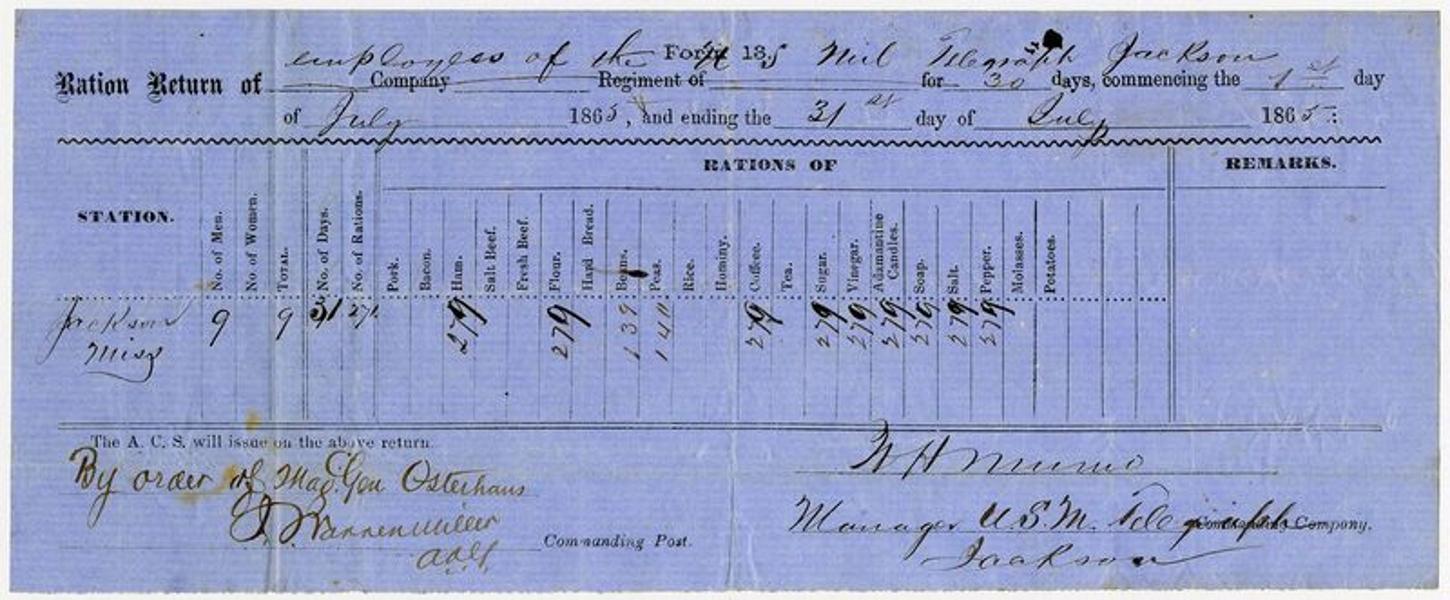 Form 13
employees of the U S Mil Telegraph Jackson
Ration Return of Company Regiment of for 30 days, commencing the 1st day
of July 1865, and ending the 31st day of July 1865.
RATIONS OF
REMARKS.
STATION.
No. of Men.
No of Women.
TOTAL.
No. of Days.
No. of Rations.
Pork.
Bacon.
Ham.
Salt Beef.
Fresh Beef.
Flour.
Hard Bread.
Beans.
Peas.
Rice.
Hominy.
Coffee.
Tea.
Sugar.
Vinegar.
Adamantine Candles.
Soap.
Salt.
Pepper.
Molasses.
Potatoes.
Jackson 9 9 31 279 279 139 140 279 279 279 279 279 279 279
Miss
The A. C. S. will issue on the above return.
By order of Maj Gen Osterhaus
Warrenmiller
Commanding Post.
W H Munro
Manager U.S.M. Telegraph Commanding Company.
Jackson